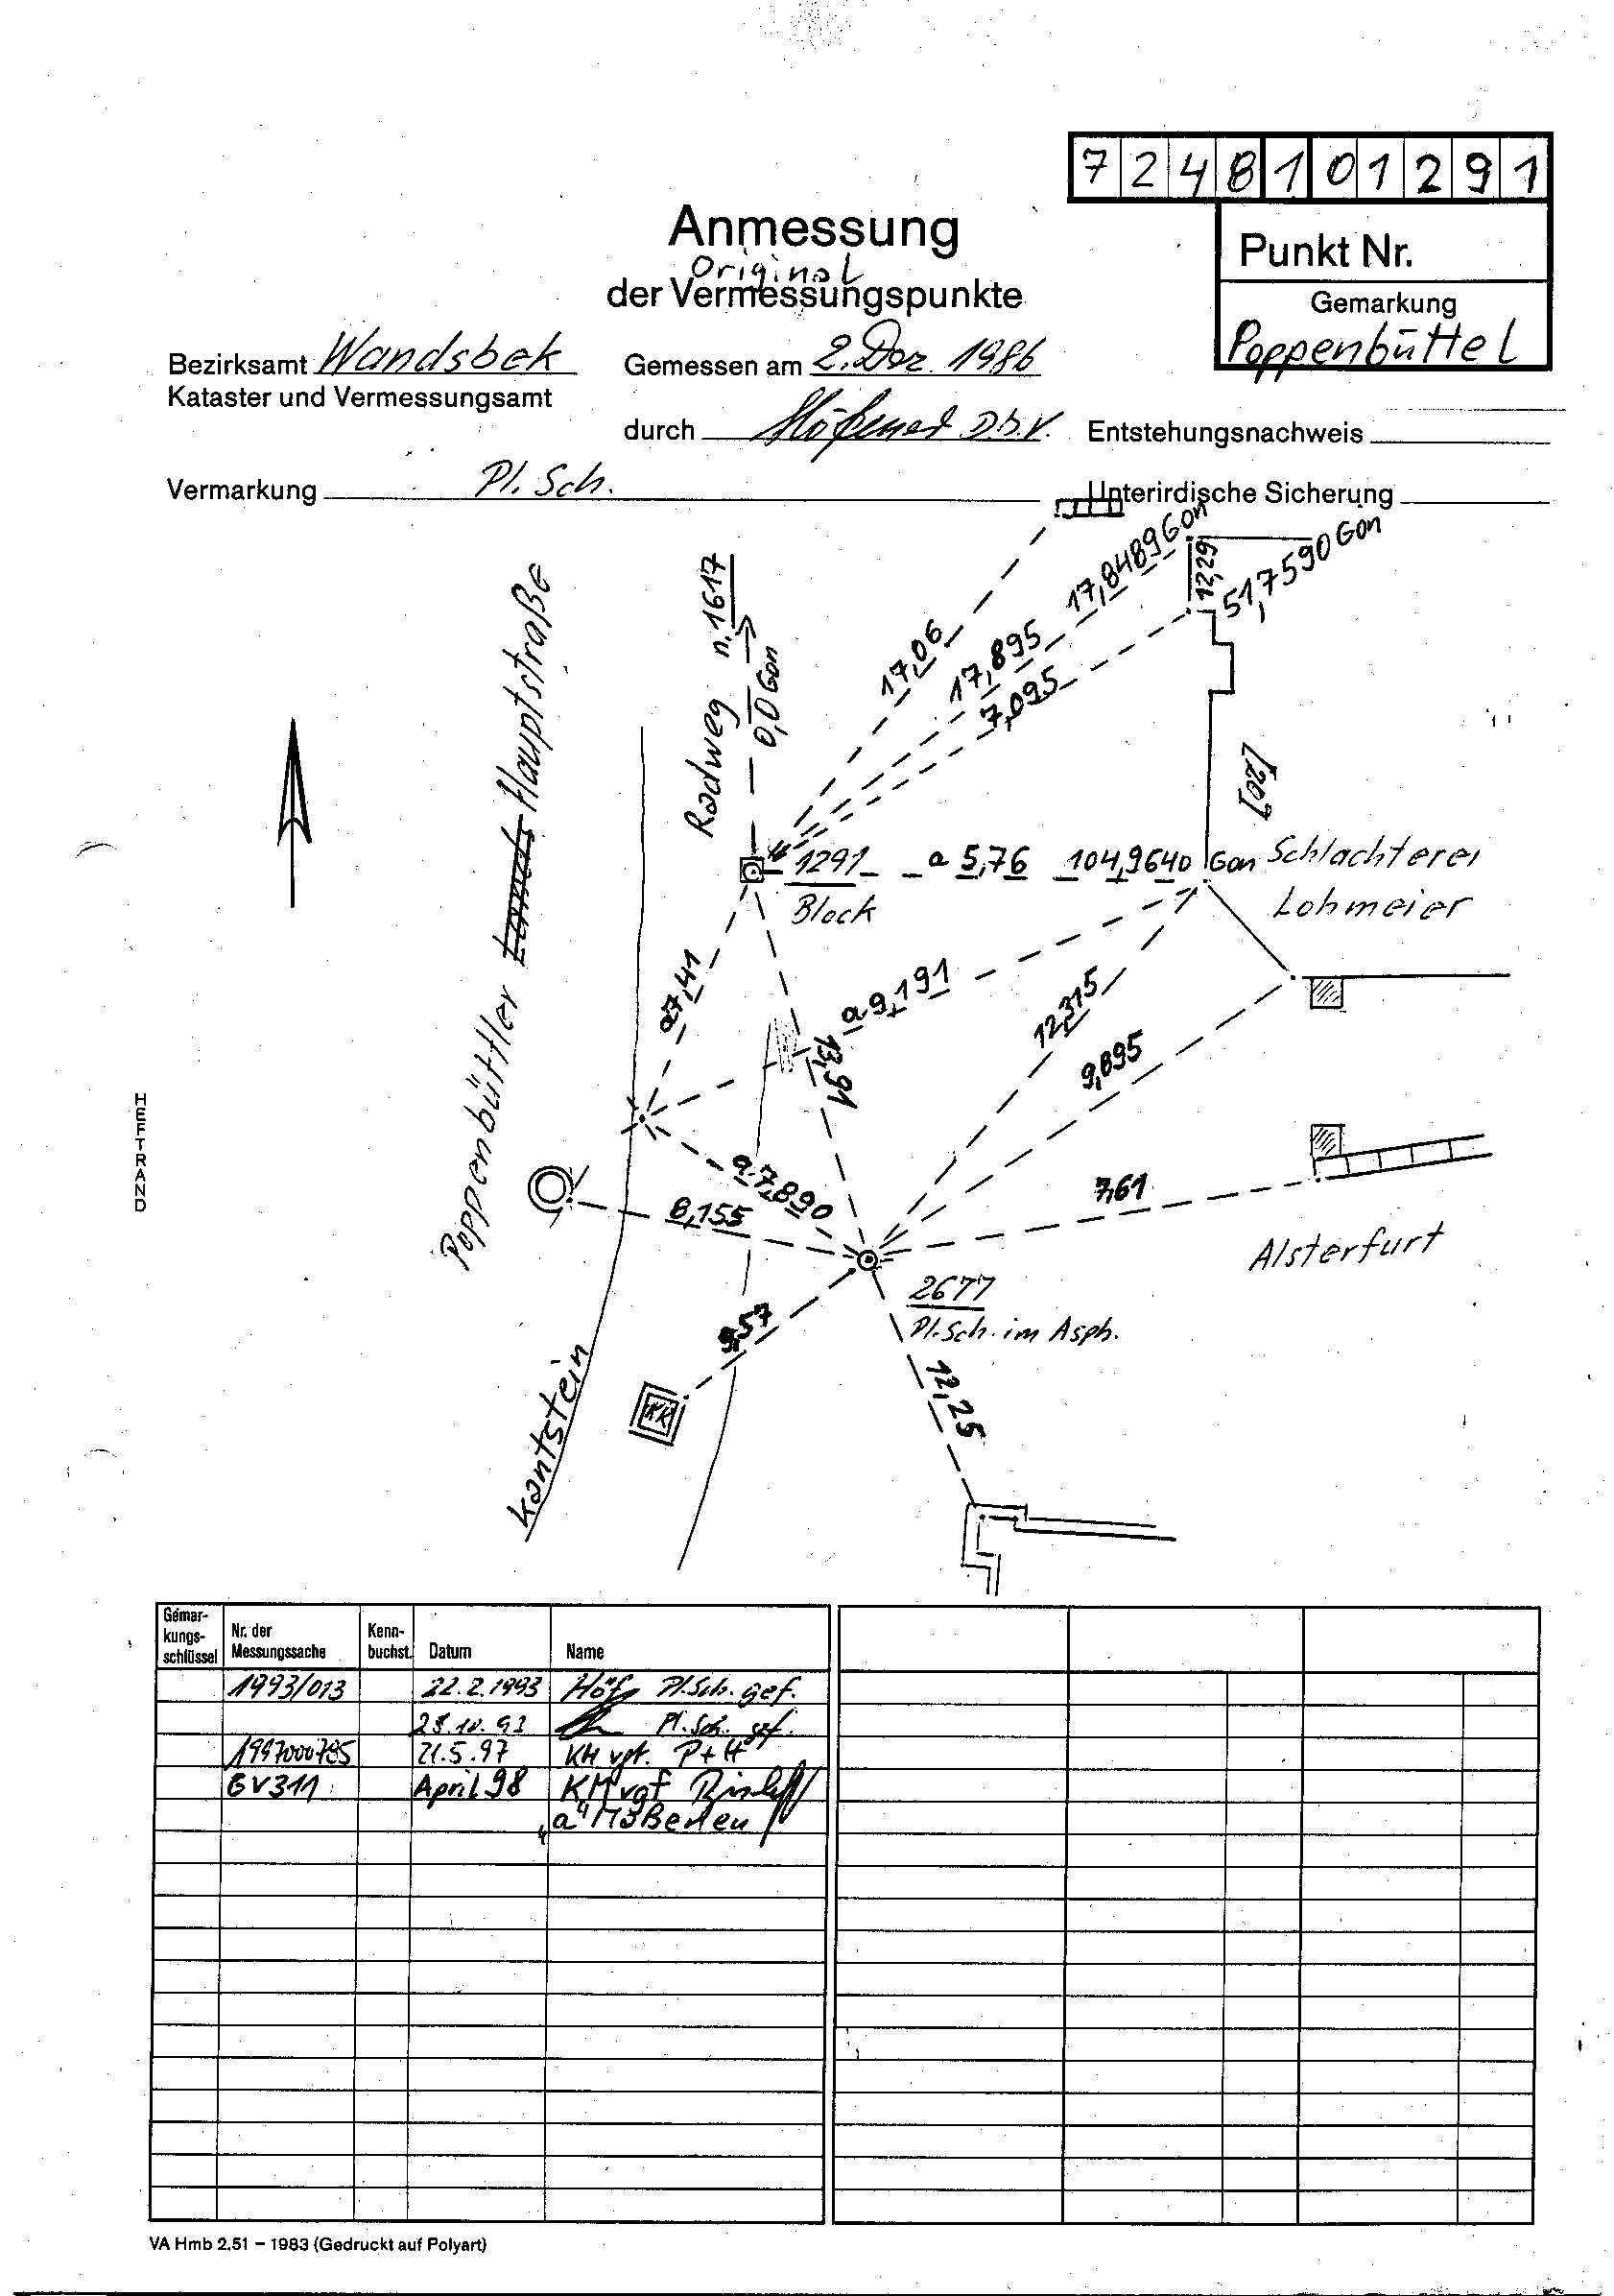 7248101291
Anmessung
Original
der Vermessungspunkte
Punkt Nr.
Gemarkung
Poppenbüttel
Bezirksamt Wandsbek
Gemessen am 2. Dez. 1986
Kataster und Vermessungsamt
durch
Entstehungsnachweis
Vermarkung Pl. Sch.
Unterirdische Sicherung
17,8489 Gon
51,7590 Gon
12,29
n. 1617
Radweg
0,0 Gon
17,06
17,895
7,095
Poppenbüttler Hauptstraße
[20]
1291
a 5,76
104,9640 Gon
Schlachterei
Lohmeier
Block
a7,41
a 9,191
12,315
13,91
9,895
HEFTRAND
a 7,890
8,155
7,61
Alsterfurt
2677
Pl.Sch. im Asph.
9,57
12,25
KK
Kantstein
Gemar-
kungs-
schlüssel
Nr. der
Messungssache
Kenn-
buchst.
Datum
Name
1993/013 22.2.1993 Pl.Sch. gef.
28.10.93 Pl.Sch. gef.
1997000785 21.5.97 KM vgf. P+H
GV311 April 98 KM vgf
"a" Maße
VA Hmb 2.51 – 1983 (Gedruckt auf Polyart)